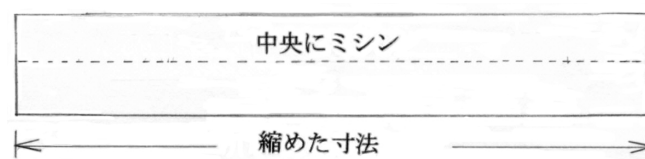 中央にミシン
縮めた寸法